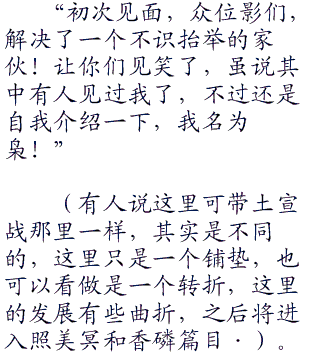 “初次见面，众位影们，
解决了一个不识抬举的家
伙！让你们见笑了，虽说其
中有人见过我了，不过还是
自我介绍一下，我名为
枭！”
（有人说这里可带土宣
战那里一样，其实是不同
的，这里只是一个铺垫，也
可以看做是一个转折，这里
的发展有些曲折，之后将进
入照美冥和香磷篇目·）。